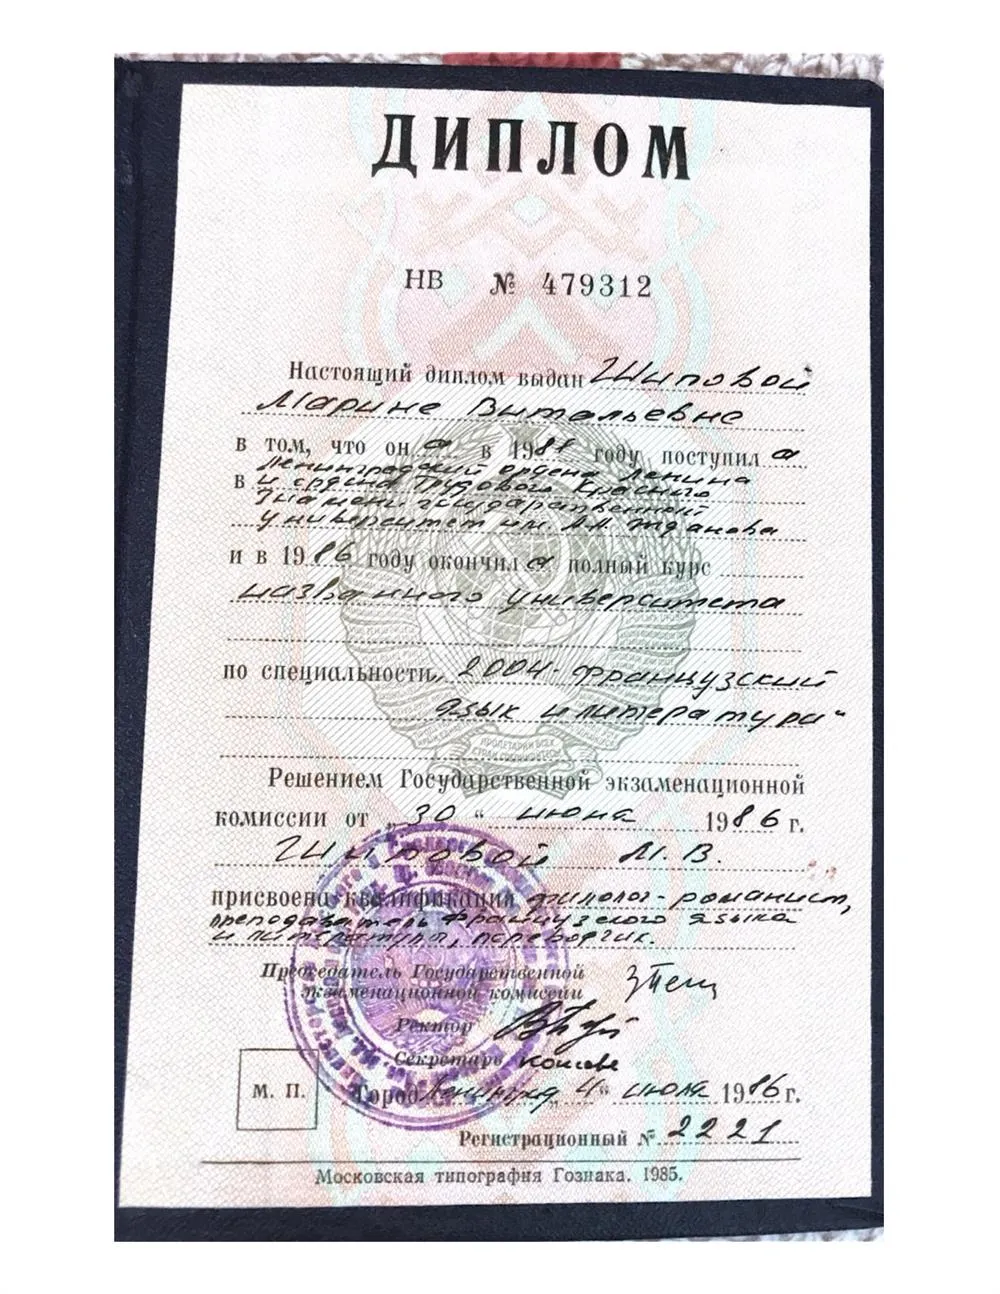 ДИПЛОМ
НВ № 479312
Настоящий диплом выдан Шиповой
Марине Витальевне
в том, что он а в 1981 году поступил а
в Ленинградский ордена Ленина
и ордена Трудового Красного
Знамени государственный
университет им. А.А. Жданова
и в 1986 году окончил а полный курс
названного университета
по специальности „2004- французский
язык и литература“
ПРОЛЕТАРИИ ВСЕХ
СТРАН СОЕДИНЯЙТЕСЬ
Решением Государственной экзаменационной
комиссии от „30“ июня 1986 г.
Шиповой М.В.
присвоена квалификация филолог-романист,
преподаватель французского языка
и литературы, переводчик.
Председатель Государственной
экзаменационной комиссии
Ректор
Секретарь
М. П. Город Ленинград „4“ июля 1986 г.
Регистрационный № 2221
Московская типография Гознака. 1985.